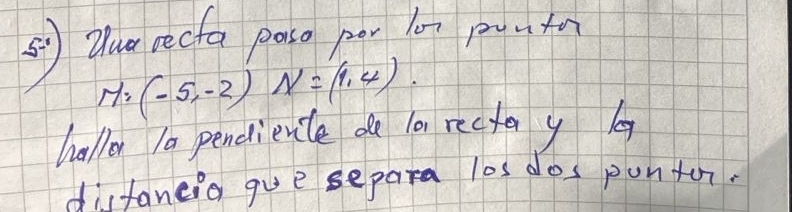 5º) Una recta pasa por los puntos
M=(-5,-2) N=(1,4).
hallar la pendiente de la recta y la
distancia que separa los dos puntos.